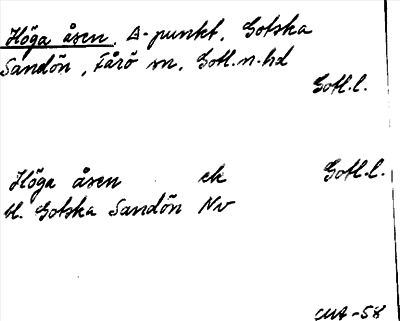 Höga åsen, Δ-punkt, Gotska
Sandön, Fårö sn, Gotl.n.hd
Gotl.l.
Höga åsen ek Gotl.l.
bl. Gotska Sandön NV
CMA-58